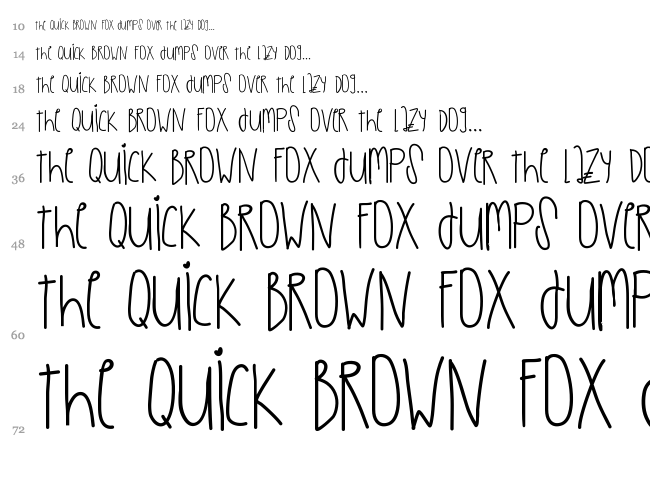 10 the QUiCK BROWN FOX dUMPS OVeR the LAZY DOg...
14 the QUiCK BROWN FOX dUMPS OVeR the LAZY DOg...
18 the QUiCK BROWN FOX dUMPS OVeR the LAZY DOg...
24 the QUiCK BROWN FOX dUMPS OVeR the LAZY DOg...
36 the QUiCK BROWN FOX dUMPS OVeR the LAZY DO
48 the QUiCK BROWN FOX dUMPS OVeR
60 the QUiCK BROWN FOX dUMP
72 the QUiCK BROWN FOX